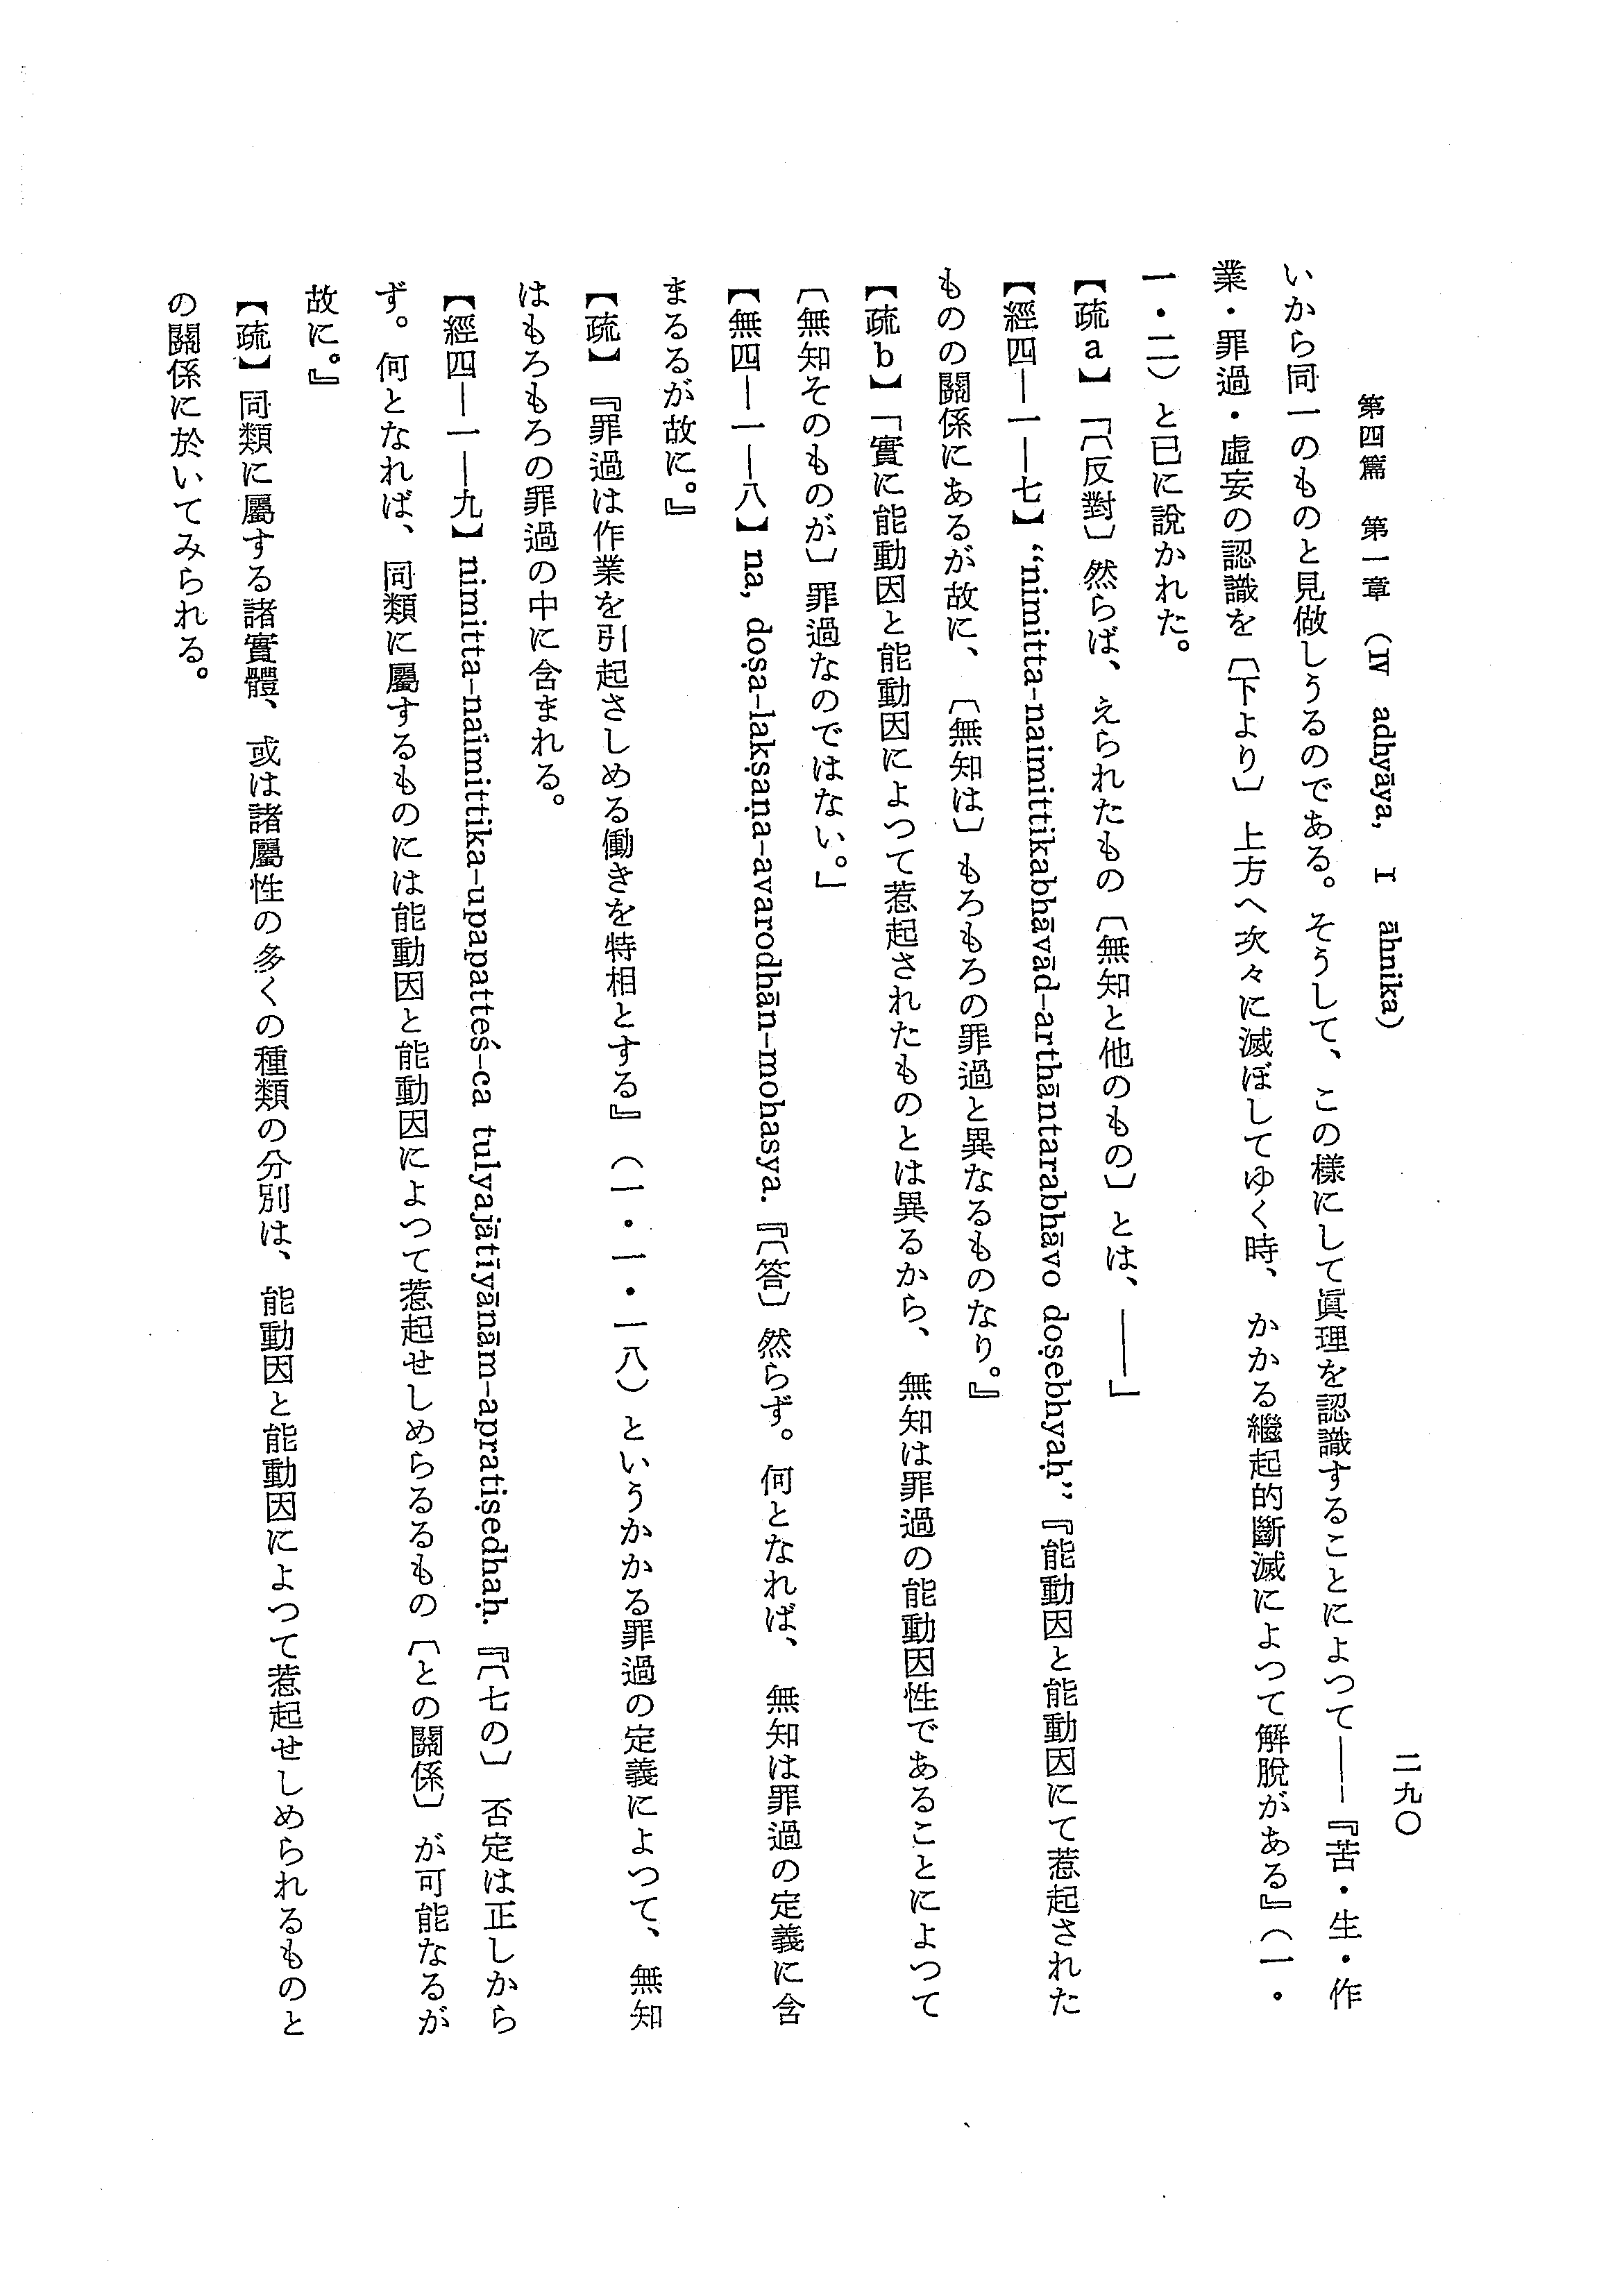 第四篇　第一章　（Ⅳ　adhyāya,　Ⅰ　āhnika）
二九〇
いから同一のものと見做しうるのである。そうして、この様にして眞理を認識することによつて――『苦・生・作
業・罪過・虛妄の認識を〔下より〕上方へ次々に滅ぼしてゆく時、かかる繼起的斷滅によつて解脫がある』（一・
一・二）と已に說かれた。
【疏a】「〔反對〕然らば、えられたもの〔無知と他のもの〕とは、――」
【經四―一―七】“nimitta-naimittikabhāvād-arthāntarabhāvo doṣebhyaḥ”『能動因と能動因にて惹起された
ものの關係にあるが故に、〔無知は〕もろもろの罪過と異なるものなり。』
【疏b】「實に能動因と能動因によつて惹起されたものとは異るから、無知は罪過の能動因性であることによつて
〔無知そのものが〕罪過なのではない。」
【無四―一―八】na, doṣa-lakṣaṇa-avarodhān-mohasya.『〔答〕然らず。何となれば、無知は罪過の定義に含
まるるが故に。』
【疏】『罪過は作業を引起さしめる働きを特相とする』（一・一・一八）というかかる罪過の定義によつて、無知
はもろもろの罪過の中に含まれる。
【經四―一―九】nimitta-naimittika-upapatteś-ca tulyajātīyānām-apratiṣedhaḥ.『〔七の〕否定は正しから
ず。何となれば、同類に屬するものには能動因と能動因によつて惹起せしめらるるもの〔との關係〕が可能なるが
故に。』
【疏】同類に屬する諸實體、或は諸屬性の多くの種類の分別は、能動因と能動因によつて惹起せしめられるものと
の關係に於いてみられる。